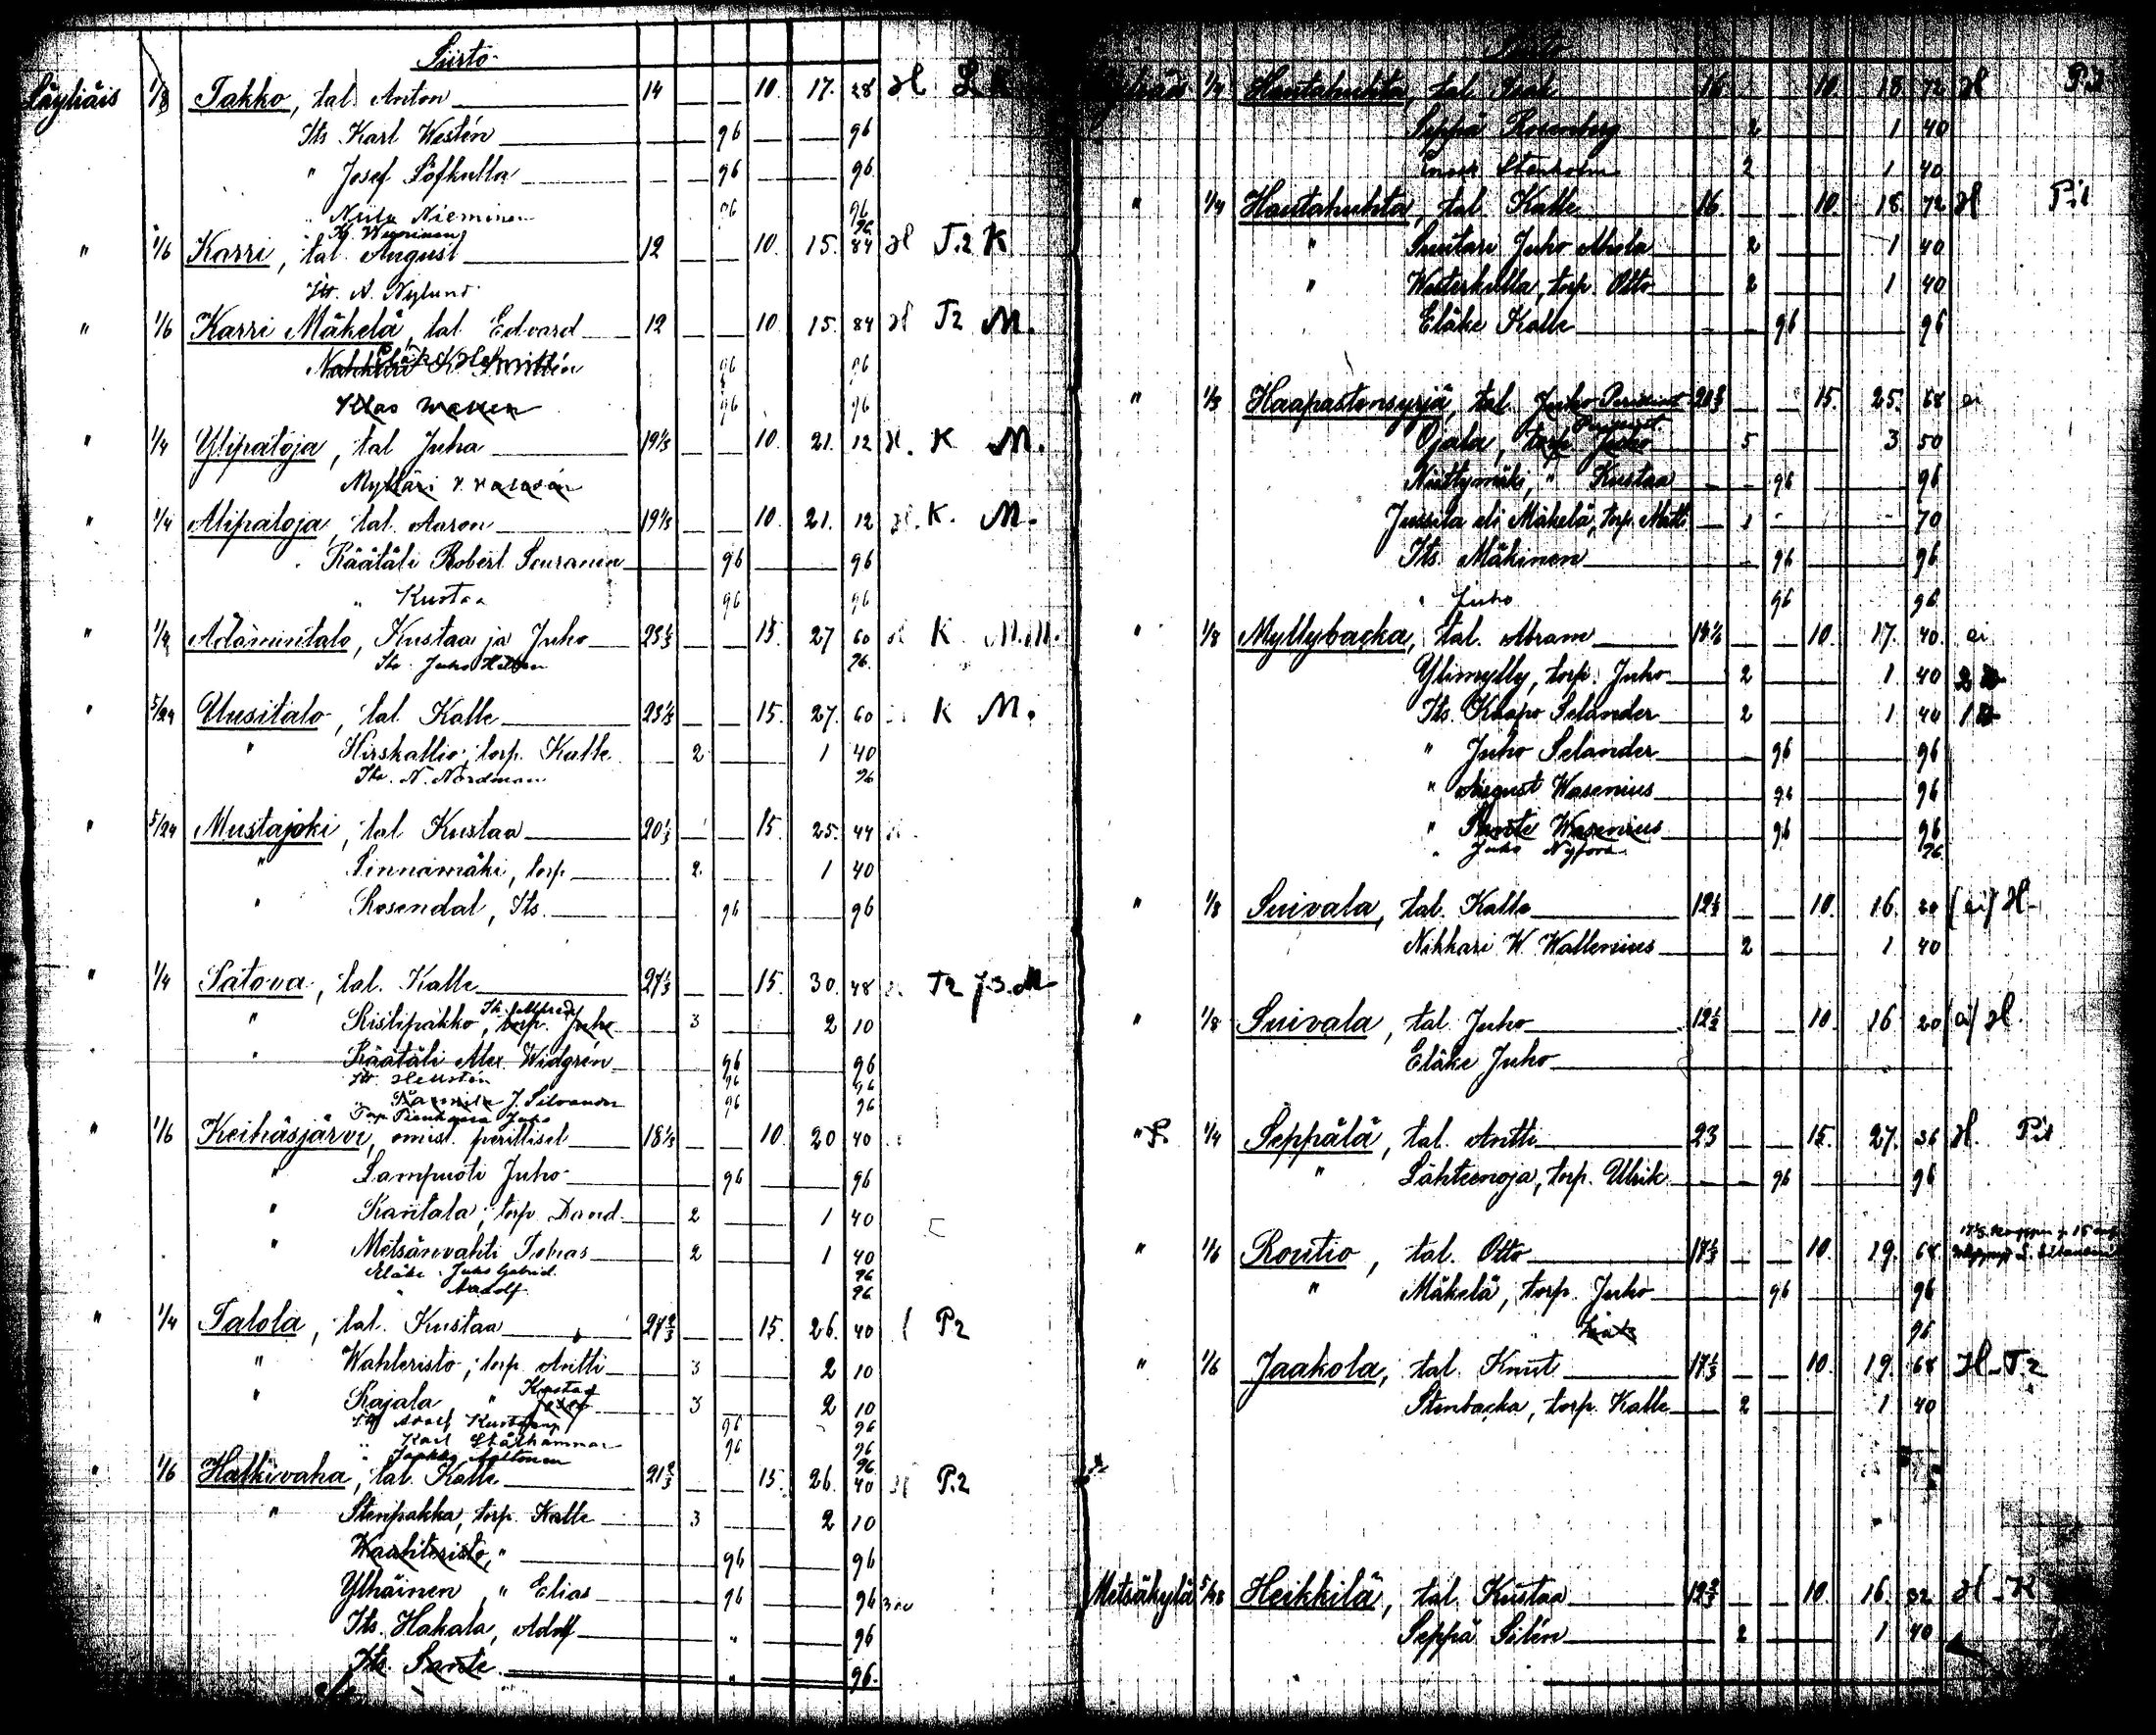 Siirto
Läyliäis 1/8 Takko, tal. Anton 14 10. 17. 28 H L K
Its Karl Westén 96 96
" Josef Löfkulla 96 96
" Niilo Nieminen 96 96
" 96
" 1/6 Karri, tal. August 12 10. 15. 84 H T.2 K
Its. A. Nylund
" 1/6 Karri Mäkelä, tal. Edvard 12 10. 15. 84 H T2 M.
Nahkuri K. Smittén 96 96
Klas 96 96
" 1/4 Ylipaloja, tal Juha 19 1/3 10. 21. 12 H. K M.
Mylläri
" 1/4 Alipaloja, tal. Aaron 19 1/3 10. 21. 12 H. K. M.
Räätäli Robert Seuranen 96 96
" Kustaa 96 96
" 1/4 Adamintalo, Kustaa ja Juho 23 1/2 15. 27 60 K M.M.
Its. Juho 96.
" 5/24 Uusitalo, tal. Kalle 23 1/2 15. 27. 60 K M.
" Hirskallio, torp. Kalle 2 1 40
Its. N. Nordman 96
" 5/24 Mustajoki, tal Kustaa 20 1/3 15. 25. 44
" Linnamäki, torp 2. 1 40
" Rosendal, Its. 96 96
" 1/4 Satova, tal. Kalle 27 1/3 15. 30. 48 T2 J.3. M
" Ristipakko, torp. Juho 3 2 10
" Räätäli Alex. Widgrén 96 96
Its. Hellstén 96 96
" J. Silvander 96 96
Torp. Juho
" 1/6 Keihäsjärvi, omist. perilliset 18 1/3 10. 20 40
" Lampuoti Juho 96 96
" Rantala, torp. David 2 1 40
" Metsänvahti Tobias 2 1 40
Eläke Juho Gabriel 96
" Aadolf 96
" 1/4 Talola, tal. Kustaa 27 2/3 15. 26. 40 P2
" Wahteristo, torp. Antti 3 2 10
" Rajala " Kustaa Josef 3 2 10
Its. Adolf 96 96
" Karl Stålhammar 96 96
" Jaakko Aaltonen 96
" 1/6 Halkivaha, tal. Kalle 21 2/3 15. 26. 40 H P.2
" Stenpakka, torp. Kalle 3 2 10
Waahteristo, " 96 96
Ylhäinen, " Elias 96 96
Its. Hakala, Adolf " 96
Its. Sante " 96.
Siirto
Läyliäis 1/4 Hautakuhta, tal. Isak 16 10. 18. 72 H Pil
Seppä Rosenberg 2 1 40
Enock Stenholm 2 1 40
" 1/4 Hautakuhta, tal. Kalle 16. 10. 18. 72 H Pil
" Suutari Juho Ahola 2 1 40
" Westerkulla, torp. Otto 2 1 40
Eläke Kalle 96 96
" 1/3 Haapastensyrjä, tal. Juho 20 2/3 15. 25. 68 ei
Ojala, torp. Juho 5 3 50
Niittymäki, " Kustaa 96 96
Jussila eli Mäkelä, torp. Matti 1 70
Its. Mäkinen 96 96
" Juho 96 96
" 1/8 Myllybacka, tal. Abram 18 1/6 10. 17. 40. ei
Ylimylly, torp. Juho 2 1 40
Its. Kaapo Selander 2 1 40
" Juho Selander 96 96
" August Wasenius 96 96
" Wasenius 96 96
" Juho 96
" 1/8 Suivala, tal. Kalle 12 1/2 10. 16. 20 (ei) H
Nikkari W. Wallenius 2 1 40
" 1/8 Suivala, tal. Juho 12 1/2 10. 16 20 (ei) H.
Eläke Juho
" 1/4 Seppälä, tal. Antti 23 15. 27. 36 H. Pit
" Lähteenoja, torp. Ulrik 96 96
" 1/6 Routio, tal. Otto 17 1/3 10. 19. 68
" Mäkelä, torp. Juho 96 96
96
" 1/6 Jaakola, tal. Knut 17 1/3 10. 19. 68 H T2
Stenbacka, torp. Kalle 2 1 40
Metsäkylä 5/48 Heikkilä, tal. Kustaa 12 2/3 10. 16. 32 H K
Seppä Silén 2 1 40